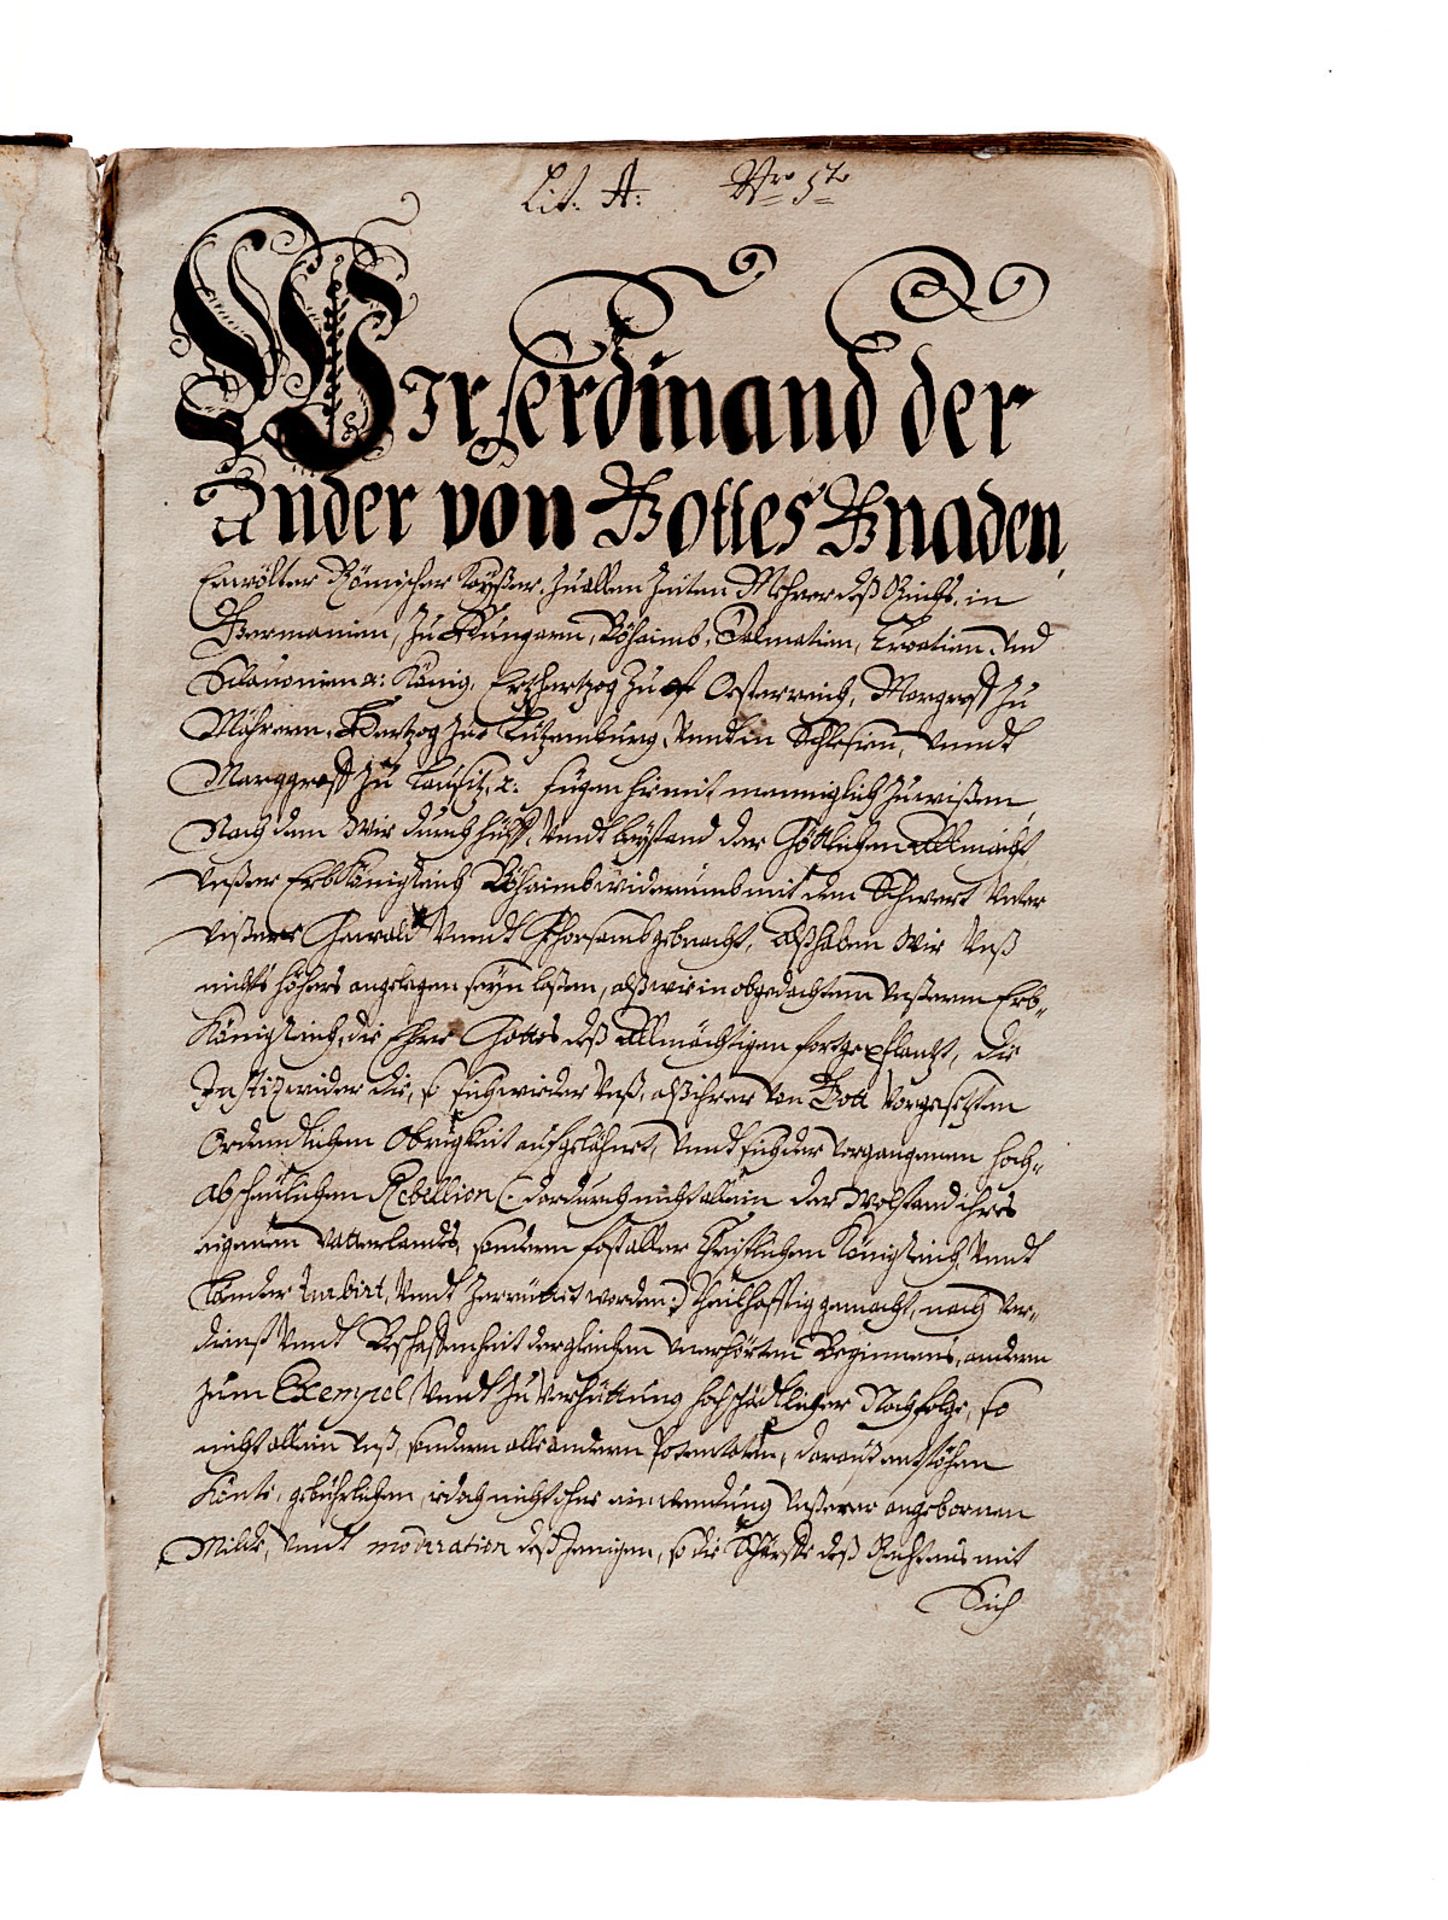 Lit. A: Nro 5to
Wir Ferdinand der
Ander von Gottes Gnaden,
Erwölter Römischer Kayßer, zu allen Zeiten Mehrer deß Reichs, in
Germanien, zu Hungarn, Böhaimb, Dalmatien, Croatien, Vnd
Sclauonien ꝛc: König, Ertzhertzog zu Osterreich, Marggraff zu
Mährern, Hertzog zue Lützemburg, Vnndt in Schlesien, Vnndt
Marggraff zu Lausitz, ꝛc: fügen hirmit menniglich zuwißen,
Nach dem Wir durch hülff, Vndt beystand der Göttlichen Allmacht,
Vnßer ErbKönigReich Böhaimb widerumb mit dem Schwert Vnter
Vnßere Gewald Vnndt Gehorsamb gebracht, Alß haben Wir Vnß
nichts höhers angelegen seyn laßen, alß wie in obgedachtem Vnßerm Erb-
KönigReich, die Ehre Gottes deß Allmächtigen fortgepflantzt, die
Justiz wider die, so sich wieder Vnß, alß ihrer Von Gott Vorgesetzten
Ordendlichen Obrigkeit aufgelähnet, Vnndt sich der Vorgangenen hoch-
abscheulichen Rebellion (: dardurch nicht allein der Wolstand ihres
eigenen Vatterlands, sondern fast aller Christlichen KönigReich, Vnndt
Länder turbirt, Vnndt Zerrüttet worden :) theilhafftig gemacht, nach Ver-
dienst Vnndt Beschaffenheit dergleichen Vnerhörten Beginnens, andern
zum Exempel, Vnndt zu Verhüttung hochschädlicher Nachfolge, so
nicht allein Vnß, sondern alle andern Potentaten, darauß entstöhen
Könte, gebührlichen, iedoch nicht ohne einwendung Vnßerer angebornen
Milde, Vnndt moderation deß Jenigen, so die Schärffe deß Rechtens mit
Sich